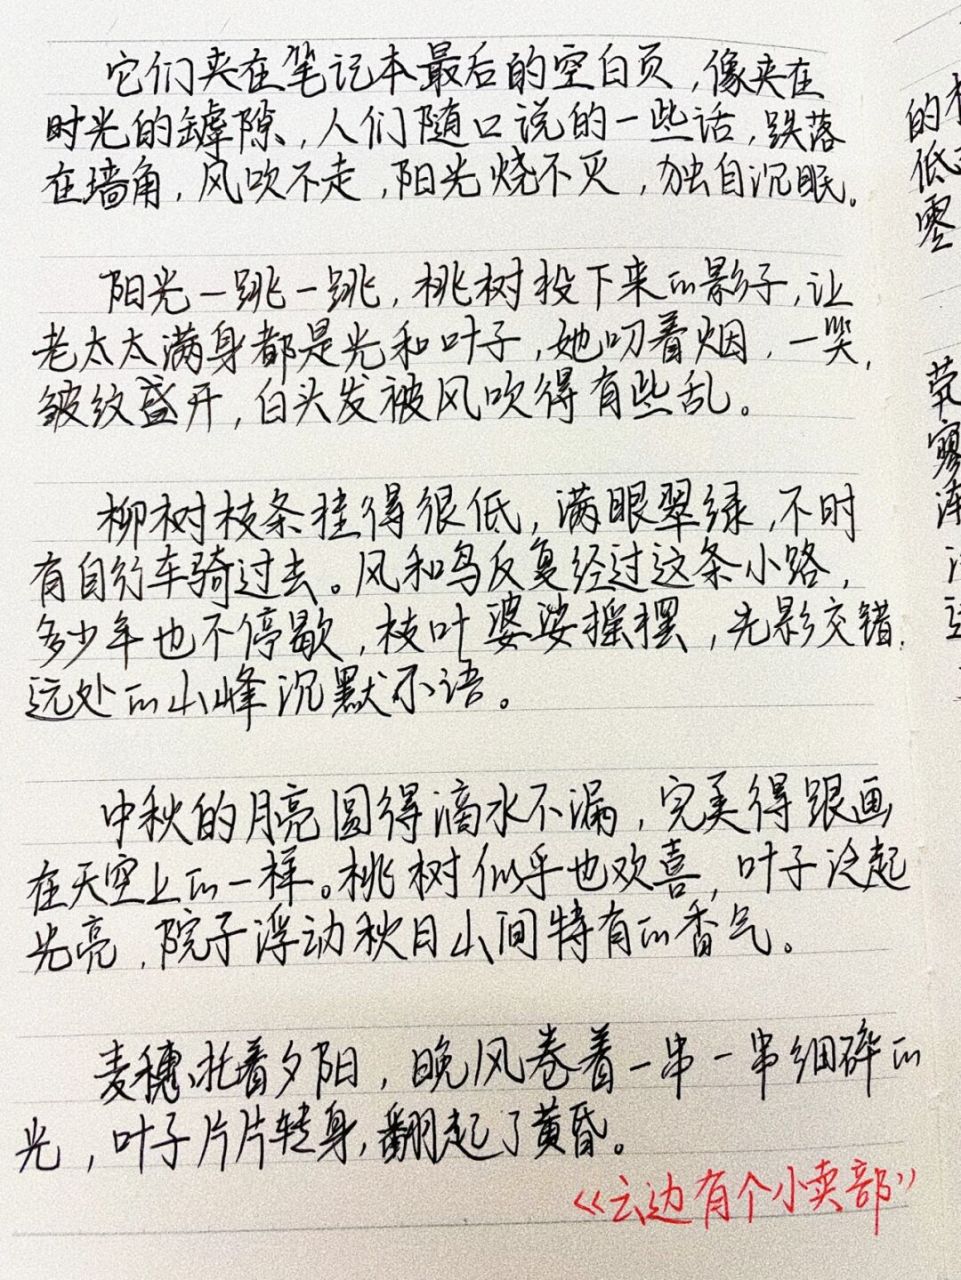 它们夹在笔记本最后的空白页，像夹在
时光的罅隙，人们随口说的一些话，跌落
在墙角，风吹不走，阳光烧不灭，独自沉眠。
阳光一跳一跳，桃树投下来的影子，让
老太太满身都是光和叶子，她叼着烟，一笑，
皱纹盛开，白头发被风吹得有些乱。
柳树枝条挂得很低，满眼翠绿，不时
有自行车骑过去。风和鸟反复经过这条小路，
多少年也不停歇，枝叶婆娑摇摆，光影交错，
远处的山峰沉默不语。
中秋的月亮圆得滴水不漏，完美得跟画
在天空上的一样。桃树似乎也欢喜，叶子泛起
光亮，院子浮动秋日山间特有的香气。
麦穗托着夕阳，晚风卷着一串一串细碎的
光，叶子片片转身，翻起了黄昏。
《云边有个小卖部》
的
低
零